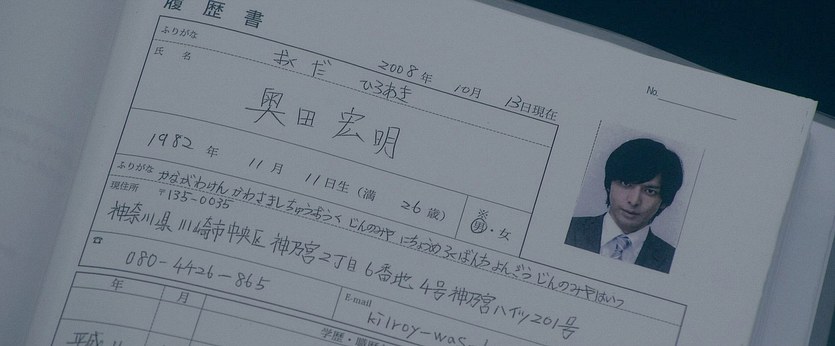 履歴書
2008年 10月 13日現在
No.
ふりがな おくだ ひろあき
氏名 奥田 宏明
1982年 11月 11日生(満 26歳) ※男・女
ふりがな かながわけん かわさきしちゅうおうく じんのみや にちょうめ ろくばんち よんごう じんのみやはいつ
現住所 〒135-0035
神奈川県 川崎市中央区 神乃宮2丁目6番地4号 神乃宮ハイツ201号
080-4426-865
E-mail kilroy-was-
年 月 学歴・職歴
平成